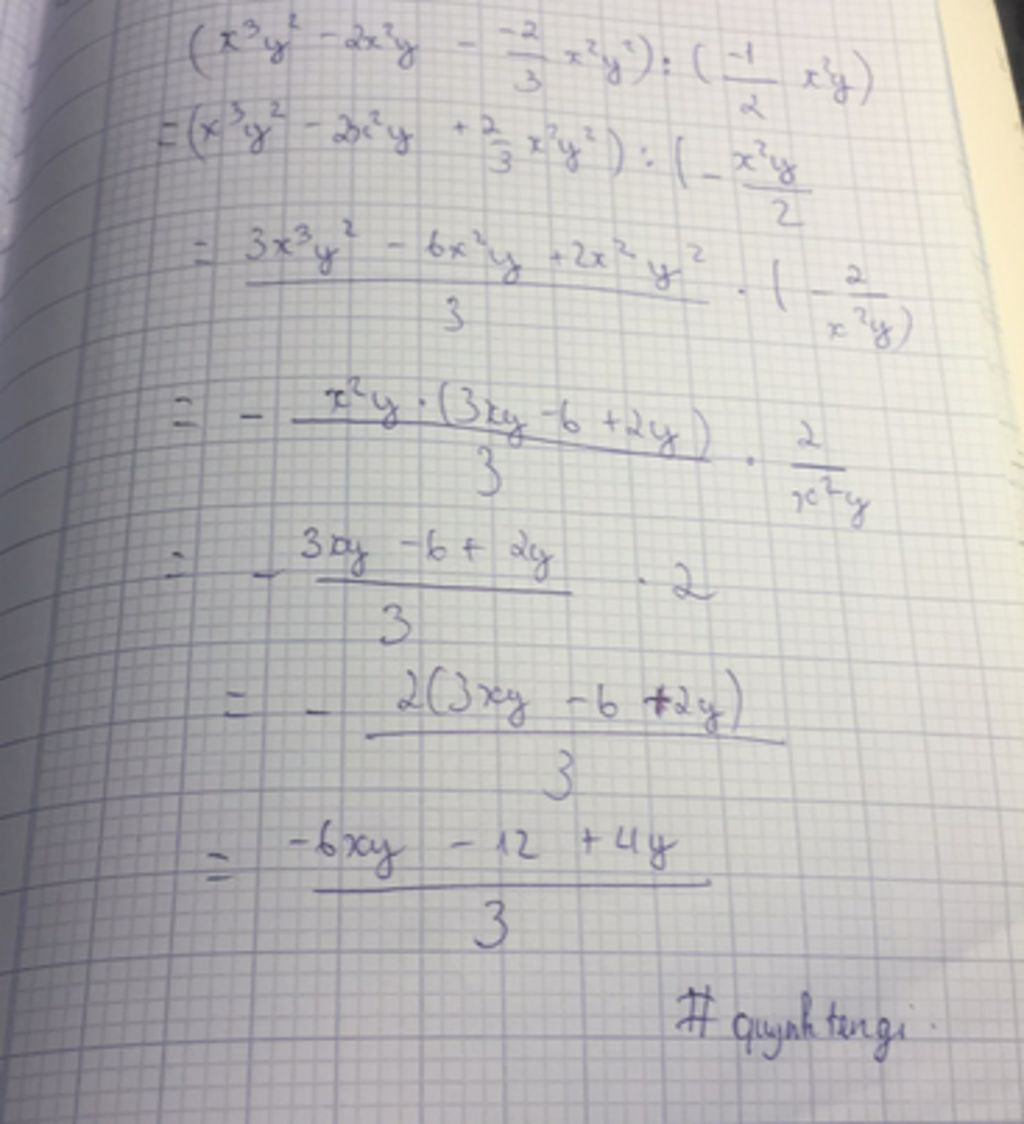 (x³y² - 2x²y - \frac{-2}{3} x²y²) : (\frac{-1}{2} x²y)
= (x³y² - 2x²y + \frac{2}{3} x²y²) : (- \frac{x²y}{2}
= \frac{3x³y² - 6x²y + 2x²y²}{3} . (- \frac{2}{x²y})
= - \frac{x²y . (3xy - 6 + 2y)}{3} . \frac{2}{x²y}
= - \frac{3xy - 6 + 2y}{3} . 2
= - \frac{2(3xy - 6 + 2y)}{3}
= \frac{-6xy - 12 + 4y}{3}
# quynh tengi.